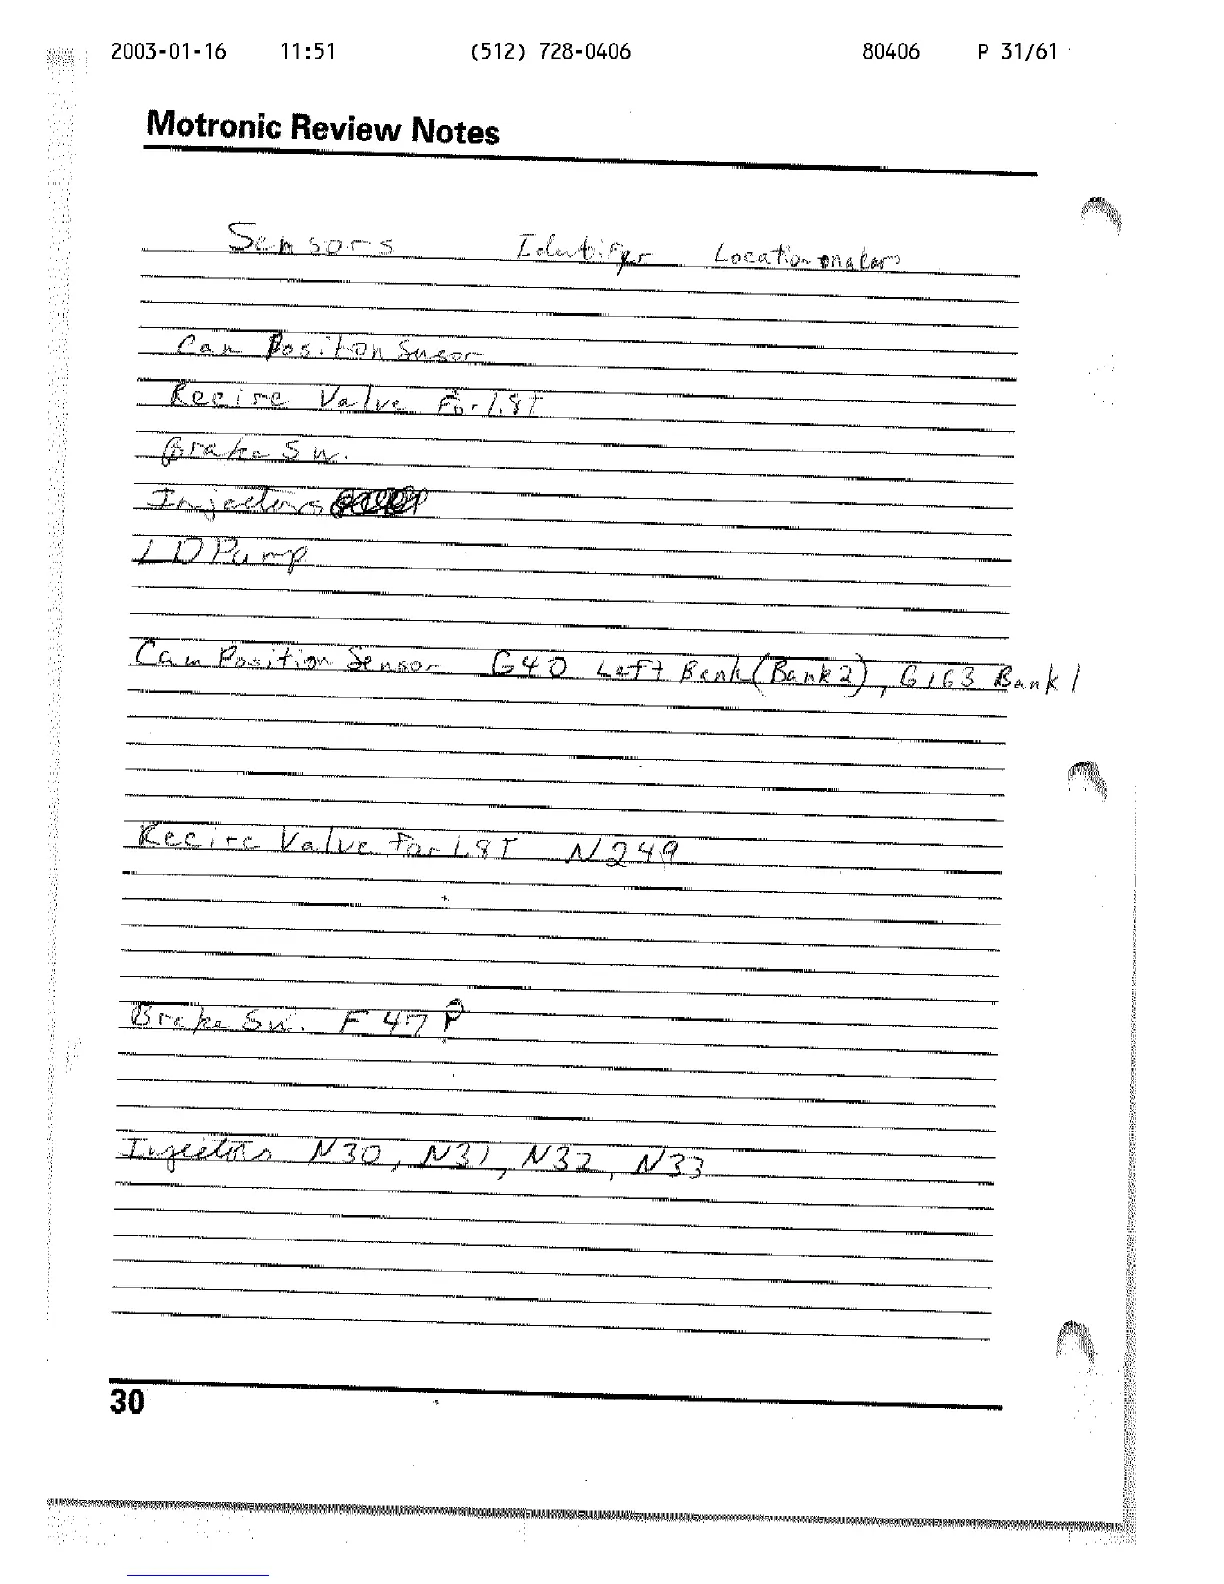 2003-01-16 11:51 (512) 728-0406 80406 P 31/61
Motronic Review Notes
Sensors Identifer Location on a car
Cam Positon Snesor
Recirc Valve For 1.8T
Brake Sw.
Injectors
LD Pump
Cam Position Sensor G40 Left Bank (Bank 2), G163 Bank 1
Recirc Valve For 1.8T N249
Brake Sw. F 47 P
Injectors N30, N31, N32, N33
30